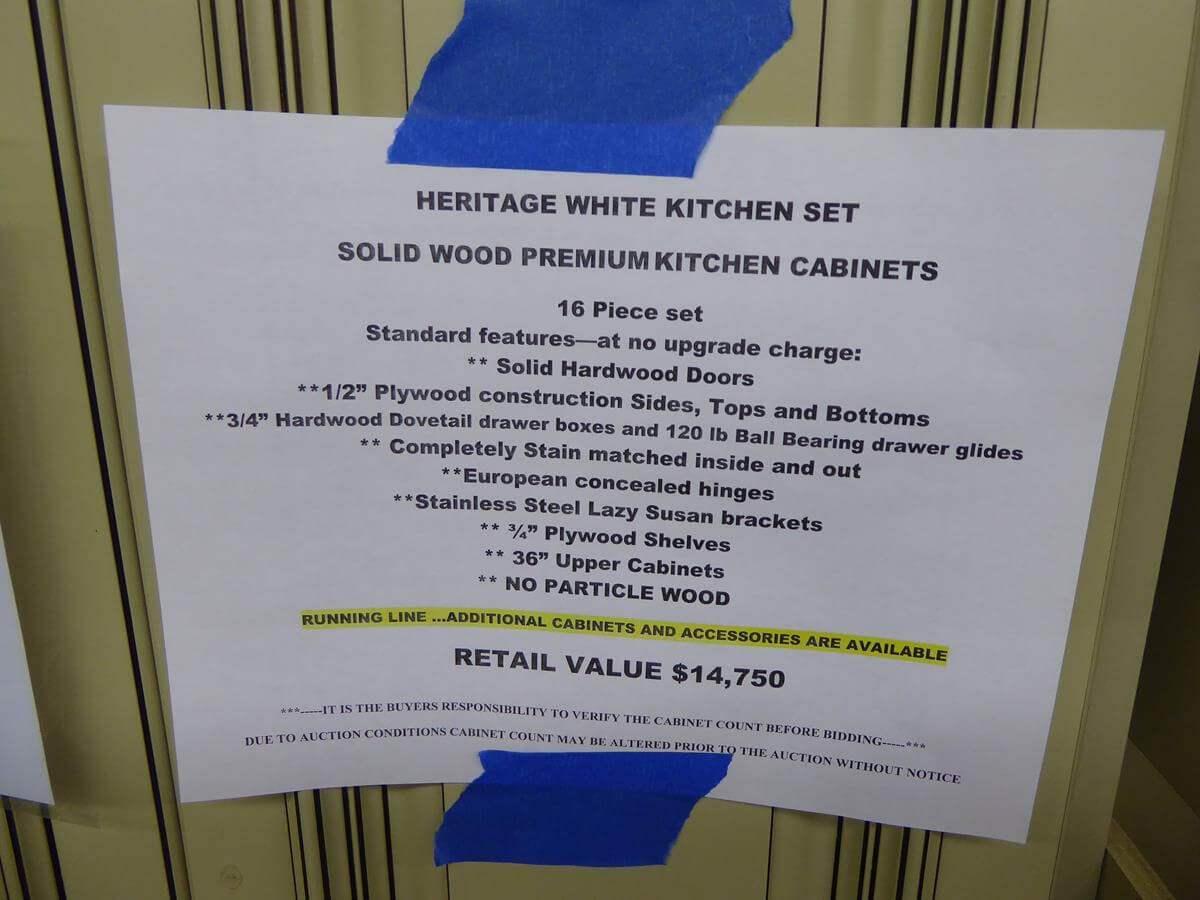 HERITAGE WHITE KITCHEN SET
SOLID WOOD PREMIUM KITCHEN CABINETS
16 Piece set
Standard features—at no upgrade charge:
** Solid Hardwood Doors
**1/2” Plywood construction Sides, Tops and Bottoms
**3/4” Hardwood Dovetail drawer boxes and 120 lb Ball Bearing drawer glides
** Completely Stain matched inside and out
**European concealed hinges
**Stainless Steel Lazy Susan brackets
** ¾” Plywood Shelves
** 36” Upper Cabinets
** NO PARTICLE WOOD
RUNNING LINE ...ADDITIONAL CABINETS AND ACCESSORIES ARE AVAILABLE
RETAIL VALUE $14,750
***-----IT IS THE BUYERS RESPONSIBILITY TO VERIFY THE CABINET COUNT BEFORE BIDDING-----***
DUE TO AUCTION CONDITIONS CABINET COUNT MAY BE ALTERED PRIOR TO THE AUCTION WITHOUT NOTICE